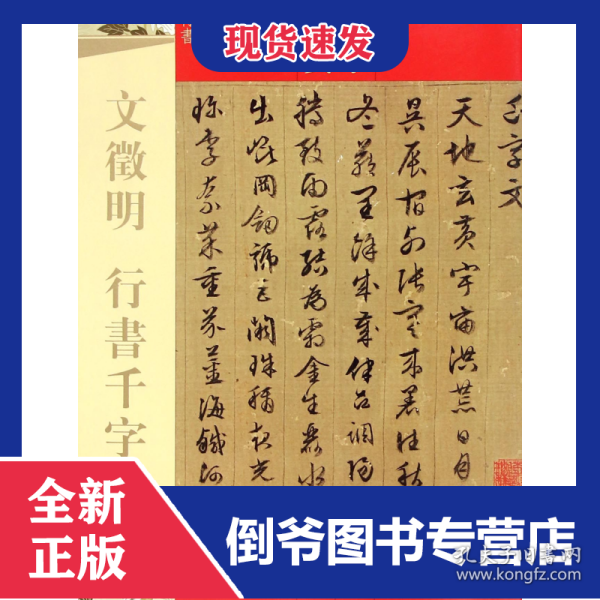 现货速发
書
文徵明 行書千字
千字文
天地玄黄宇宙洪荒日月
昃辰宿列張寒来暑往秋
冬藏閏餘成歲律吕調陽
騰致雨露結為霜金生麗水
出崐岡劔號巨闕珠稱夜光
珍李柰菜重芥薑海鹹河
全新
正版
倒爷图书专营店
孔夫子旧书网
www.kongfz.com